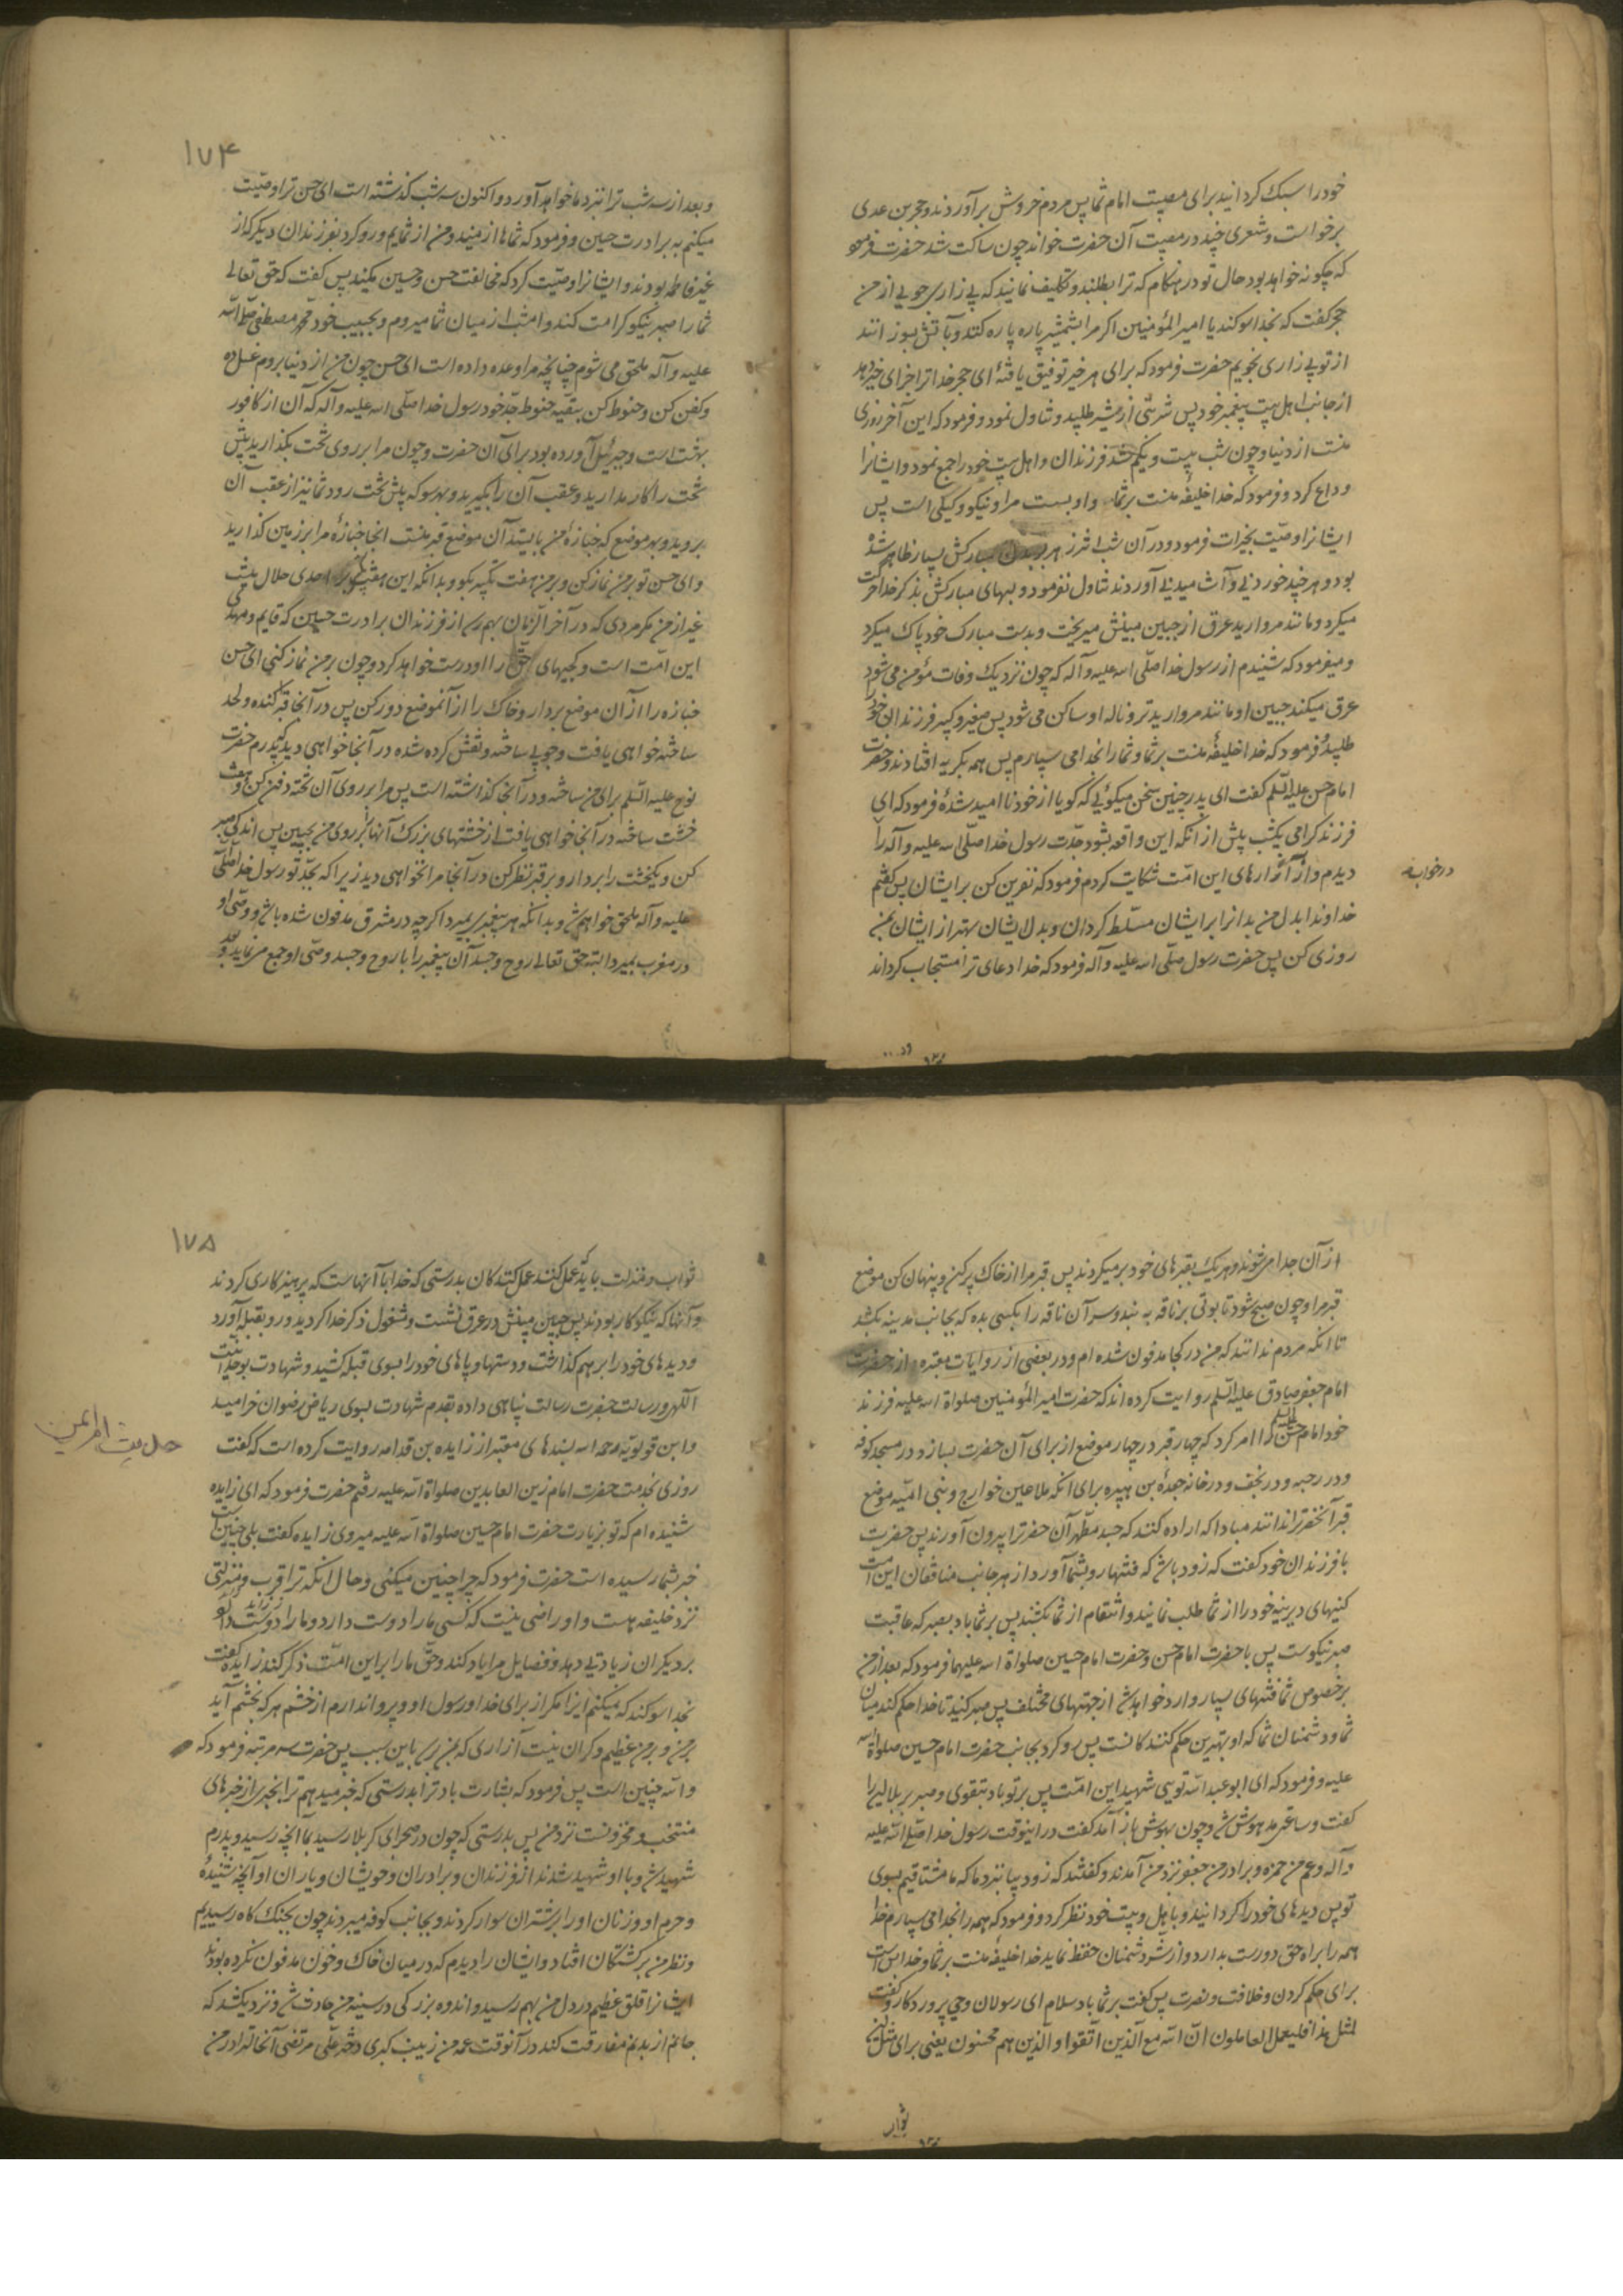 خود را سبک کردانید برای مصیبت امام شما پس مردم خروش برآوردند و حجر بن عدی
برخواست و شعری چند در مصیبت آن حضرت خواند چون ساکت شد حضرت فرمود
که چکونه خواهد بود حال تو در هنکام که ترا بطلبند و تکلیف نمایند که بیزاری جویی از من
حجر کفت که بخدا سوکند یا امیر المؤمنین اکر مرا بشمشیر پاره پاره کنند و بآتش بسوزانند
از تو بیزاری نجویم حضرت فرمود که برای هر خیر توفیق یافتهٔ ای حجر خدا ترا جزای خیر دهد
از جانب اهل بیت پیغمبر خود پس شربتی از شیر طلبید و تناول نمود و فرمود که این آخر روزی
منت از دنیا و چون شب بیست و یکم شد فرزندان و اهل بیت خود را جمع نمود و ایشانرا
وداع کرد و فرمود که خدا خلیفهٔ منست بر شما و او بست مرا و نیکو وکیلی است پس
ایشانرا وصیّت بخیرات فرمود و در آن شب اثر زهر بر بدن مبارکش بسیار ظاهر شدهٔ
بود و هر چند خوردنی و آشامیدنی آوردند تناول نفرمود و لبهای مبارکش بذکر خدا حرکت
میکرد و مانند مروارید عرق از جبین مبینش میریخت و بدست مبارک خود پاک میکرد
و میفرمود که شنیدم از رسول خدا صلّی الله علیه و آله که چون نزدیک وفات مؤمن می شود
عرق میکند جبین او مانند مروارید تر و ناله او ساکن می شود پس صغیر و کبیر فرزندان خود را
طلبید و فرمود که خدا خلیفهٔ منست بر شما و شما را بخدا می سپارم پس همه بکریه افتادند و حضرت
امام حسن علیه السّلم کفت ای پدر چنین سخن میکوئی که کویا از خود ناامید شدهٔ فرمود که ای
فرزند کرامی یکشب پیش از آنکه این واقعه بشود جدّت رسول خدا صلّی الله علیه و آله را
در خواب
دیدم و از آزارهای این امّت شکایت کردم فرمود که نفرین کن بر ایشان پس کفتم
خداوندا بدل من بدانرا بر ایشان مسلّط کردان و بدل ایشان بهتر از ایشان بمن
روزی کن پس حضرت رسول صلّی الله علیه و آله فرمود که خدا دعای ترا مستجاب کرداند
۱۷۴
و بعد از سه شب ترا نزد ما خواهد آورد و اکنون سه شب کذشته است ای حسن ترا وصیّت
میکنم به برادرت حسین و فرمود که شماها از منید و من از شمایم و رو کرد بفرزندان دیکر که از
غیر فاطمه بودند و ایشانرا وصیّت کرد که مخالفت حسن و حسین مکنید پس کفت که حق تعالی
شما را صبر نیکو کرامت کند و امشب از میان شما میروم و بحبیب خود محمّد مصطفی صلّی الله
علیه و آله ملحق می شوم چنانچه مرا وعده داده است ای حسن چون من از دنیا بروم غسل ده
و کفن کن و حنوط کن ببقیّه حنوط جدّ خود رسول خدا صلّی الله علیه و آله که آن از کافور
بهشت است و جبرئیل آورده بود برای آن حضرت و چون مرا بر روی تخت بکذارید پیش
تخت را کار مدارید و عقب آن را بکیرید و بهر سو که پیش تخت رود شما نیز از عقب آن
بروید و بهر موضع که جنازهٔ من بایستد آن موضع قبر منست انجا جنازهٔ مرا بر زمین کذارید
و ای حسن تو بر من نماز کن و بر من هفت تکبیر بکو و بدانکه این هفت تکبیر بر احدی حلال نیست
غیر از من مکر مردی که در آخر الزّمان بهم رسد از فرزندان برادرت حسین که قایم و مهدی
این امّت است و کجیهای حق را او درست خواهد کرد و چون بر من نماز کنی ای حسن
جنازه را از آن موضع بردار و خاک را از آنموضع دور کن پس در آنجا قبر کنده و لحد
ساخته خواهی یافت و چوبی ساخته و نقش کرده شده در آنجا خواهی دید که پدرم حضرت
نوح علیه السّلم برای من ساخته و در آنجا کذاشته است پس مرا بر روی آن تخته دفن کن و هفت
خشت ساخته در آنجا خواهی یافت از خشتهای بزرک آنها را بر روی من بچین پس اندکی صبر
کن و یکخشت را بردار و بر قبر نظر کن در آنجا مرا نخواهی دید زیرا که بجدّ تو رسول خدا صلّی الله
علیه و آله ملحق خواهم شد و بدانکه هر پیغمبری بمیرد اکر چه در مشرق مدفون شده باشد و وصی او
در مغرب بمیرد البته حق تعالی روح و جسد آن پیغمبر را با روح و جسد وصی او جمع می نماید و بعد
از آن جدا می شوند و هریک بقبرهای خود بر میکردند پس قبر مرا از خاک پر کن و پنهان کن موضع
قبر مرا و چون صبح شود تابوتی بر ناقه به بند و سر آن ناقه را بکسی بده که بجانب مدینه بکشد
تا آنکه مردم ندانند که من در کجا مدفون شده ام و در بعضی از روایات معتبره از حضرت
امام جعفر صادق علیه السّلم روایت کرده اند که حضرت امیر المؤمنین صلواة الله علیه فرزند
خود امام حسن علیه السلم را امر کرد که چهار قبر در چهار موضع از برای آن حضرت بسازد در مسجد کوفه
و در رحبه و در نجف و در خانه جعدهٔ بن هبیره برای آنکه ملاعین خوارج و بنی امیّه موضع
قبر آنحضرترا ندانند مبادا که اراده کنند که جسد مطهّر آن حضرترا بیرون آورند پس حضرت
با فرزندان خود کفت که زود باشد که فتنها رو بشما آورد از هر جانب منافقان این امت
کینهای دیرینهٔ خود را از شما طلب نمایند و انتقام از شما بکشند پس بر شما باد بصبر که عاقبت
صبر نیکوست پس با حضرت امام حسن و حضرت امام حسین صلواة الله علیهما فرمود که بعد از من
بر خصوص شما فتنهای بسیار وارد خواهد شد از جهتهای مختلف پس صبر کنید تا خدا حکم کند میان
شما و دشمنان شما که او بهترین حکم کنندکانست پس رو کرد بجانب حضرت امام حسین صلواة الله
علیه و فرمود که ای ابو عبد الله تویی شهید این امّت پس بر تو باد بتقوی و صبر بر بلا این را
کفت و ساعتی مدهوش شد و چون بهوش باز آمد کفت در اینوقت رسول خدا صلّی الله علیه
و آله و عم من حمزه و برادر من جعفر نزد من آمدند و کفتند که زود بیا نزد ما که ما مشتاقیم بسوی
تو پس دیدهای خود را کردانید و باهل و بیت خود نظر کرد و فرمود که همه را بخدا می سپارم خدا
همه را براه حق و درست بدارد و از شر دشمنان حفظ نماید خدا خلیفه منست بر شما و خدا بس است
برای حکم کردن و خلافت و نصرت پس کفت بر شما باد سلام ای رسولان وحی پروردکار و کفت
لمثل هذا فلیعمل العاملون انّ الله مع الّذین اتّقوا و الّذین هم محسنون یعنی برای مثل این
ثواب
۱۷۵
ثواب و منزلت باید که عمل کنند عمل کنندکان بدرستی که خدا با آنهاست که پرهیزکاری کردند
و آنها که نیکوکار بودند پس جبین مبینش در عرق نشست و مشغول ذکر خدا کردید و رو بقبله آورد
و دیدهای خود را بر هم کذاشت و دستها و پاهای خود را بسوی قبله کشید و شهادت بوحدانیت
الکهی و رسالت حضرت رسالت پناهی داده بقدم شهادت بسوی ریاض رضوان خرامید
و ابن قولویه رحمه الله بسندهای معتبر از زایده بن قدامه روایت کرده است که کفت
حدیث ام ایمن
روزی بخدمت حضرت امام زین العابدین صلواة الله علیه رفتم حضرت فرمود که ای زایده
شنیده ام که تو بزیارت حضرت امام حسین صلواة الله علیه میروی زایده کفت بلی چنین است
خبر بشما رسیده است حضرت فرمود که چرا چنین میکنی و حال آنکه ترا قرب و منزلتی
نزد خلیفه هست و او راضی نیست که کسی ما را دوست دارد و ما را
بر دیکران زیادتی دهد و فضایل مرا یاد کند و حقّ ما را بر این امّت ذکر کند زایده کفت
بخدا سوکند که نمیکنم اینرا مکر از برای خدا و رسول او و پروا ندارم از خشم هر که بخشم آید
بر من و بر من عظیم و کران نیست آزاری که بمن رسد باین سبب پس حضرت سه مرتبه فرمود که
و الله چنین است پس فرمود که بشارت باد ترا بدرستی که خبر میدهم ترا بخبری از خبرهای
منتخب و مخزونست نزد من پس بدرستی که چون در صحرای کربلا رسید بما آنچه رسید و پدرم
شهید شد و با او شهید شدند از فرزندان و برادران و خویشان و یاران او آنچه شنیدهٔ
و حرم او و زنان او را بر شتران سوار کردند و بجانب کوفه میبردند چون بجنک کاه رسیدیم
و نظر من بر کشتکان افتاد و ایشان را دیدم که در میان خاک و خون مدفون نکرده بودند
ایشانرا قلق عظیم در دل من بهم رسید و اندوه بزرکی در سینه من حادث شد و نزدیک شد که
جانم از بدنم مفارقت کند در آنوقت عمه من زینب کبری دختر علّی مرتضی آنحالترا در من